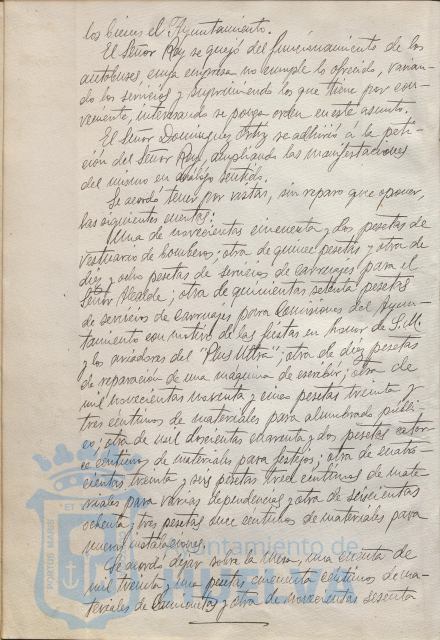 los bienes el Ayuntamiento.
El Señor Rey se quejó del funcionamiento de los
autobuses, cuya empresa no cumple lo ofrecido, varian-
do los servicios y suprimiendo los que tiene por con-
veniente, interesando se ponga orden en este asunto.
El Señor Dominguez Ortiz se adhirió á la peti-
ción del Señor Rey, ampliando las manifestaciones
del mismo en análogo sentido.
Se acordó tener por vistas, sin reparo que oponer,
las siguientes cuentas:
Una de novecientas cincuenta y dos pesetas de
vestuario de bomberos; otra de quince pesetas y otra de
diez y ocho pesetas de servicios de carruajes para el
Señor Alcalde; otra de quinientas setenta pesetas
de servicios de carruajes para Comisiones del Ayun-
tamiento con motivo de las fiestas en honor de S.M.
y los aviadores del "Plus Ultra"; otra de diez pesetas
de reparación de una maquina de escribir; otra de
mil novecientas noventa y cinco pesetas treinta y
tres céntimos de materiales para alumbrado públi-
co; otra de mil doscientas cuarenta y dos pesetas cator-
ce céntimos de materiales para festejos; otra de cuatro-
cientas treinta y seis pesetas trece céntimos de mate-
riales para varias dependencias y otra de seiscientas
ochenta y tres pesetas once céntimos de materiales para
nuevas instalaciones.
Se acordó dejar sobre la mesa, una cuenta de
mil treinta y una pesetas cincuenta céntimos de ma-
teriales de y otra de novecientas sesenta
PORTUS MARIS
Ayuntamiento de